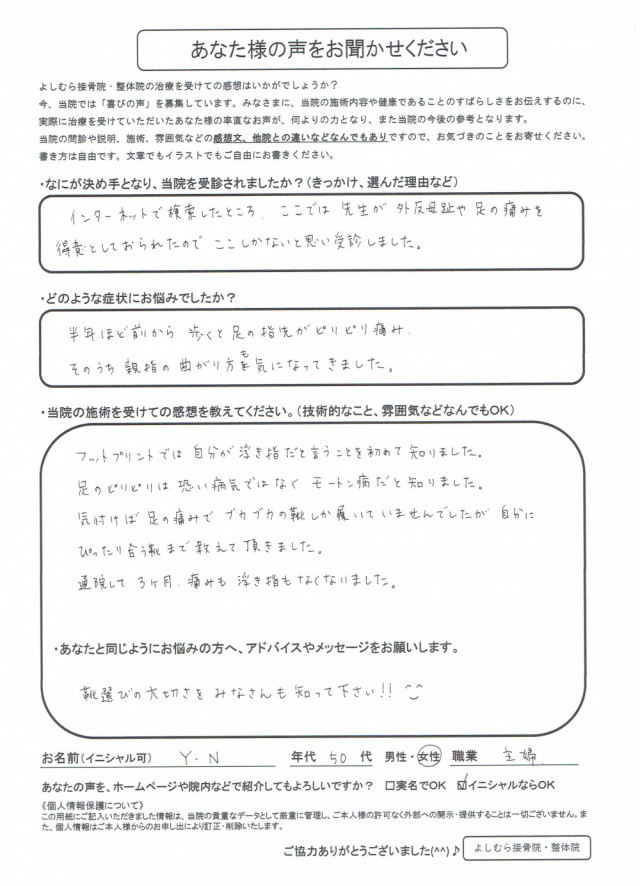 あなた様の声をお聞かせください
よしむら接骨院・整体院の治療を受けての感想はいかがでしょうか?
今、当院では「喜びの声」を募集しています。みなさまに、当院の施術内容や健康であることのすばらしさをお伝えするのに、
実際に治療を受けていただいたあなた様の率直なお声が、何よりの力となり、また当院の今後の参考となります。
当院の問診や説明、施術、雰囲気などの感想文、他院との違いなどなんでもありですので、お気づきのことをお寄せください。
書き方は自由です。文章でもイラストでもご自由にお書きください。
・なにが決め手となり、当院を受診されましたか?(きっかけ、選んだ理由など)
インターネットで検索したところ、ここでは先生が外反母趾や足の痛みを
得意としておられたのでここしかないと思い受診しました。
・どのような症状にお悩みでしたか?
半年ほど前から歩くと足の指先がピリピリ痛み、
そのうち親指の曲がり方も気になってきました。
・当院の施術を受けての感想を教えてください。(技術的なこと、雰囲気などなんでもOK)
フットプリントでは自分が浮き指だと言うことを初めて知りました。
足のピリピリは恐い病気ではなくモートン病だと知りました。
気付けば足の痛みでブカブカの靴しか履いていませんでしたが自分に
ぴったり合う靴まで教えて頂きました。
通院して3ヶ月、痛みも浮き指もなくないました。
・あなたと同じようにお悩みの方へ、アドバイスやメッセージをお願いします。
靴選びの大切さをみなさんも知って下さい!!
お名前(イニシャル可) Y・N 年代 50 代 男性・女性 職業 主婦
あなたの声を、ホームページや院内などで紹介してもよろしいですか? □実名でOK ☑イニシャルならOK
《個人情報保護について》
この用紙にご記入いただきました情報は、当院の貴重なデータとして厳重に管理し、ご本人様の許可なく外部への開示・提供することは一切ございません。ま
た、個人情報はご本人様からのお申し出により訂正・削除いたします。
ご協力ありがとうございました(^^)♪ よしむら接骨院・整体院